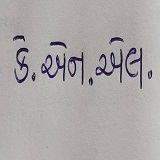 કે. એન. એલ.